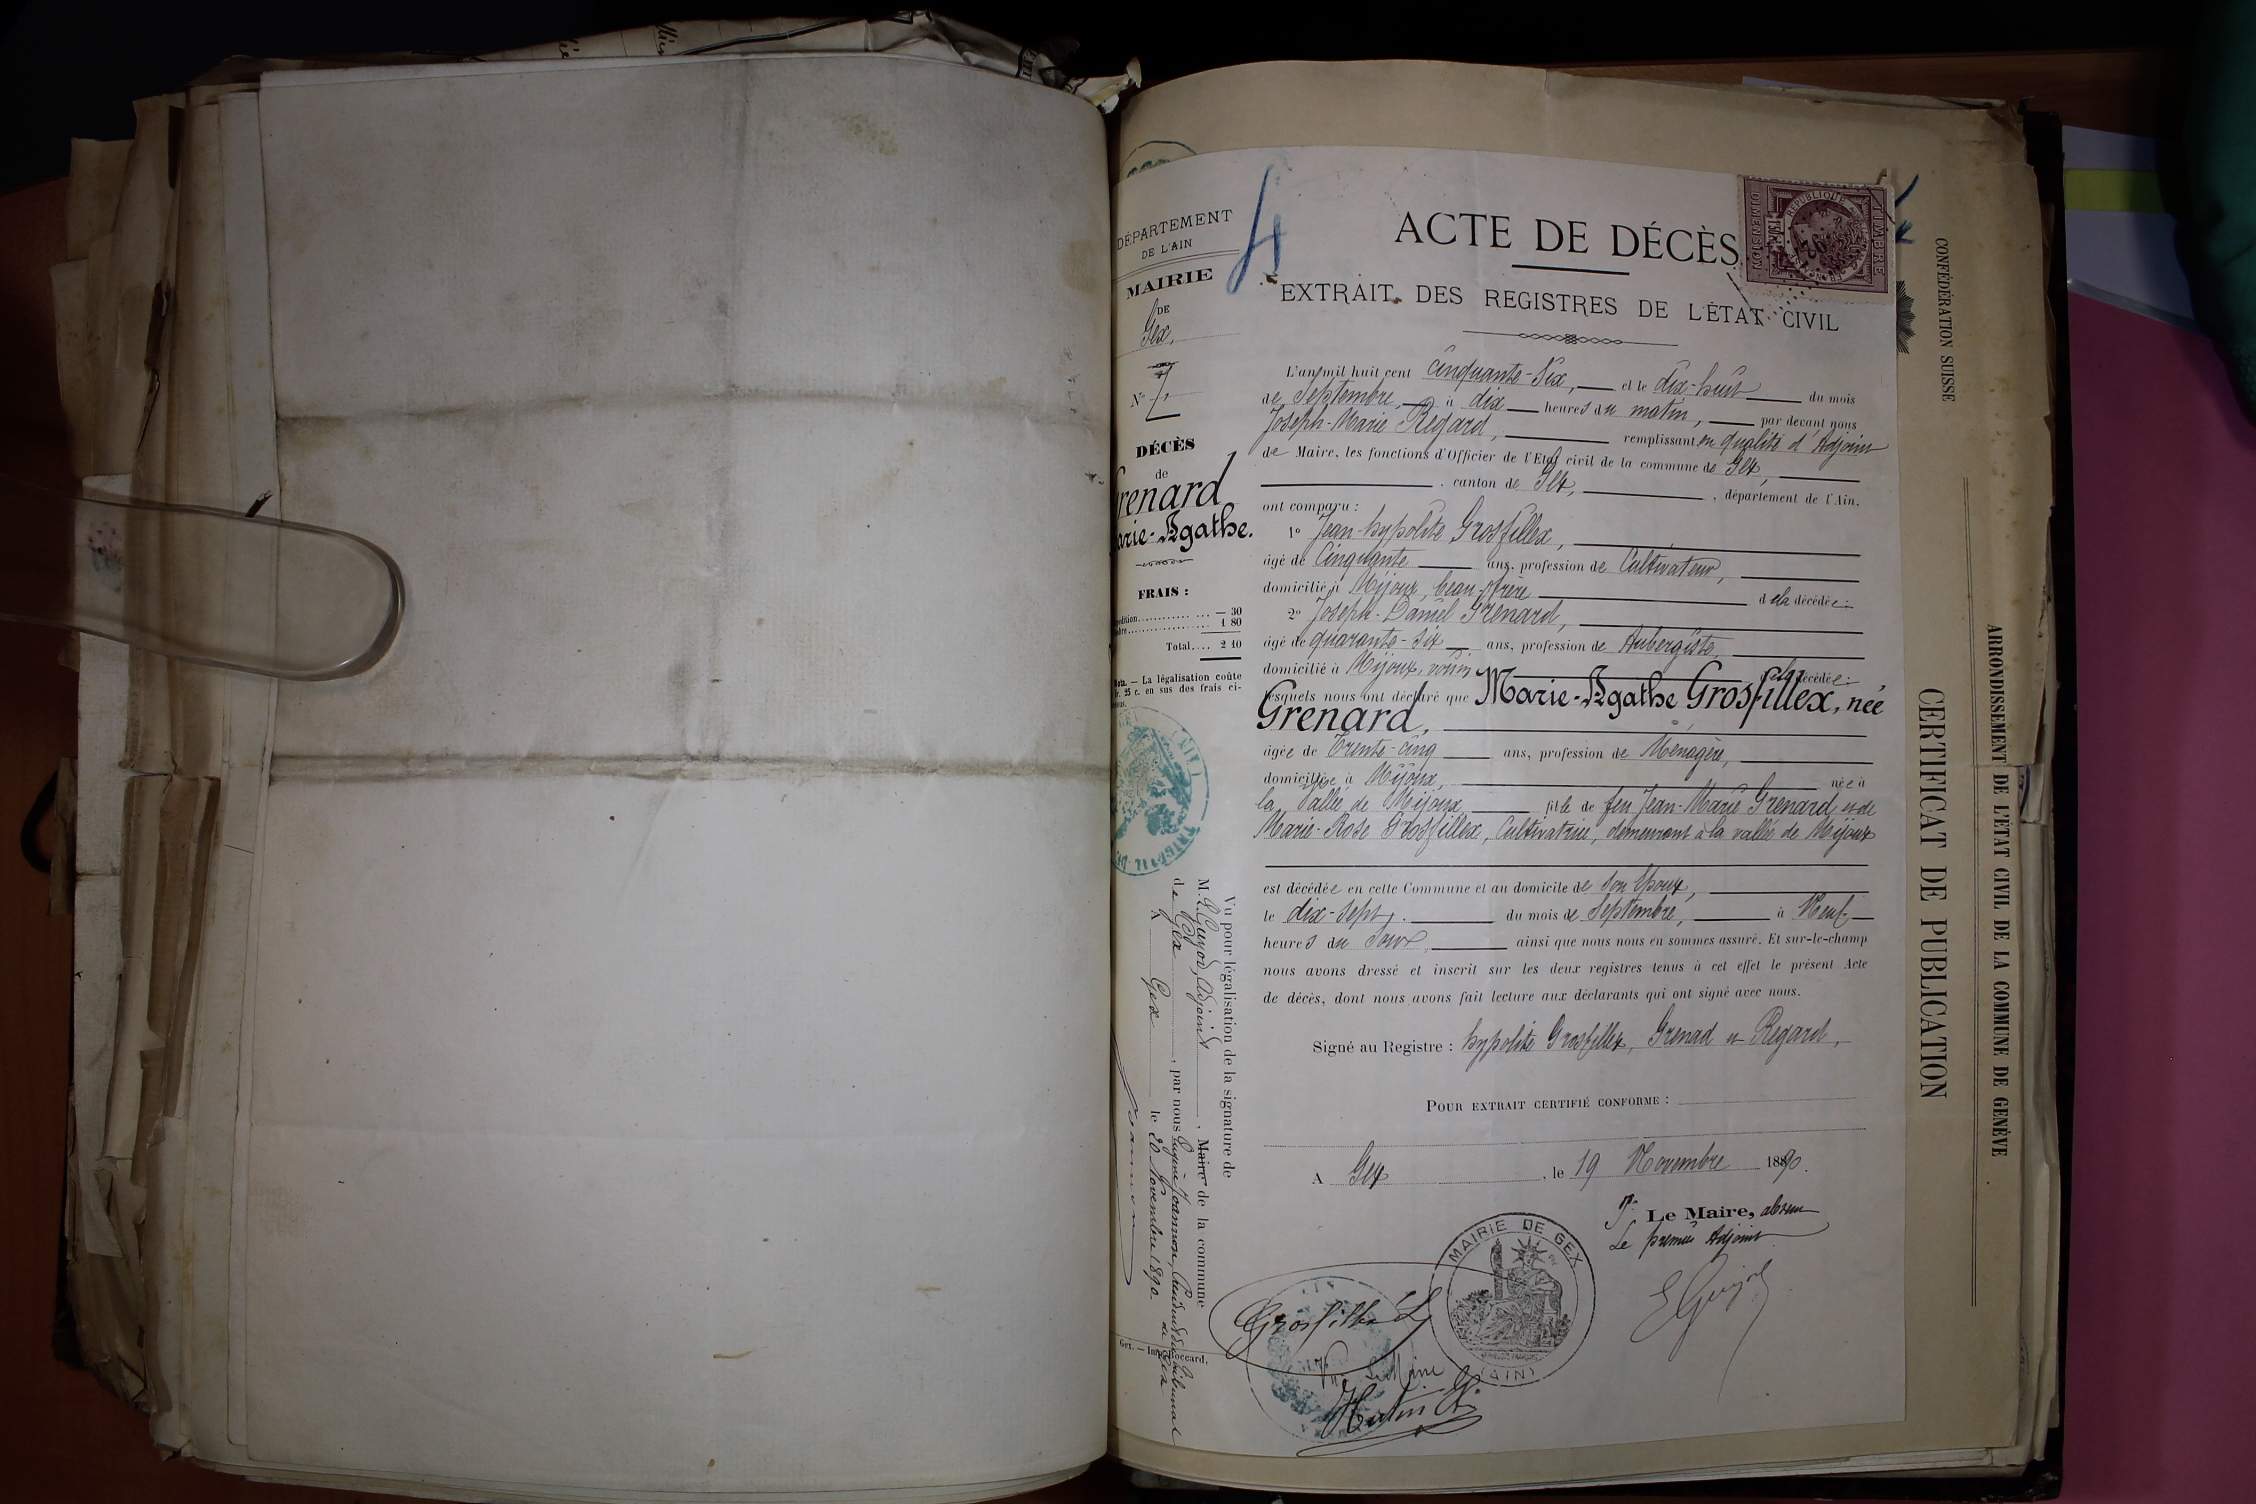 DÉPARTEMENT
DE L'AIN
MAIRIE
DE
Gex,
N°
DÉCÈS
de
Grenard
Marie-Agathe.
FRAIS :
— 30
1 80
Total.... 2 10
Nota. — La légalisation coûte
25 c. en sus des frais ci-
Vu pour légalisation de la signature de
M. E. Guyod, Adjoint, Maire de la commune
de Gex, par nous Eugène Joannon, Président du tribunal
A Gex le 20 Novembre 1890. de Gex
Gex. — Imp. Roccard.
4
ACTE DE DÉCÈS
TIMBRE
RÉPUBLIQUE
DIMENSION
EXTRAIT DES REGISTRES DE L'ÉTAT CIVIL
L'an mil huit cent cinquante-six, et le dix-huit du mois
de Septembre, à dix heures du matin, par devant nous
Joseph-Marie Regard, remplissant en qualité d'Adjoint
de Maire, les fonctions d'Officier de l'Etat civil de la commune de Gex,
, canton de Gex, , département de l'Ain,
ont comparu :
1° Jean-hypolite Grosfillex,
âgé de Cinquante ans, profession de Cultivateur,
domicilié à Mijoux, beau-frère de la décédée:
2° Joseph-Daniel Grenard,
âgé de quarante-six ans, profession de Aubergiste,
domicilié à Mijoux, voisin de la décédée:
lesquels nous ont déclaré que Marie-Agathe Grosfillex, née
Grenard,
âgée de Trente-cinq ans, profession de Ménagère,
domiciliée à Mijoux, née à
la Vallée de Mijoux fille de feu Jean-Marie Grenard et de
Marie-Rose Grosfillex, Cultivatrice, demeurant à la vallée de Mijoux
est décédée en cette Commune et au domicile de son époux,
le dix-sept, du mois de Septembre, à Neuf
heures du soir, ainsi que nous nous en sommes assuré. Et sur-le-champ
nous avons dressé et inscrit sur les deux registres tenus à cet effet le présent Acte
de décès, dont nous avons fait lecture aux déclarants qui ont signé avec nous.
Signé au Registre : hypolite Grosfillex, Grenad et Regard,
POUR EXTRAIT CERTIFIÉ CONFORME :
A Gex, le 19 Novembre 1890.
Pr. Le Maire, absent
Le premier Adjoint
E Guyod
MAIRIE DE GEX
(AIN)
Grosfillex L
Vu Le Maire
CONFÉDÉRATION SUISSE
ARRONDISSEMENT DE L'ÉTAT CIVIL DE LA COMMUNE DE GENÈVE
CERTIFICAT DE PUBLICATION